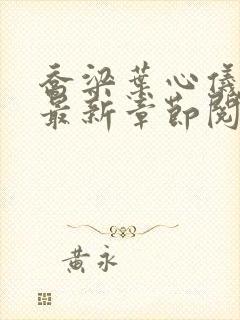 乔梁葉心儀
最新章節閱
黃永